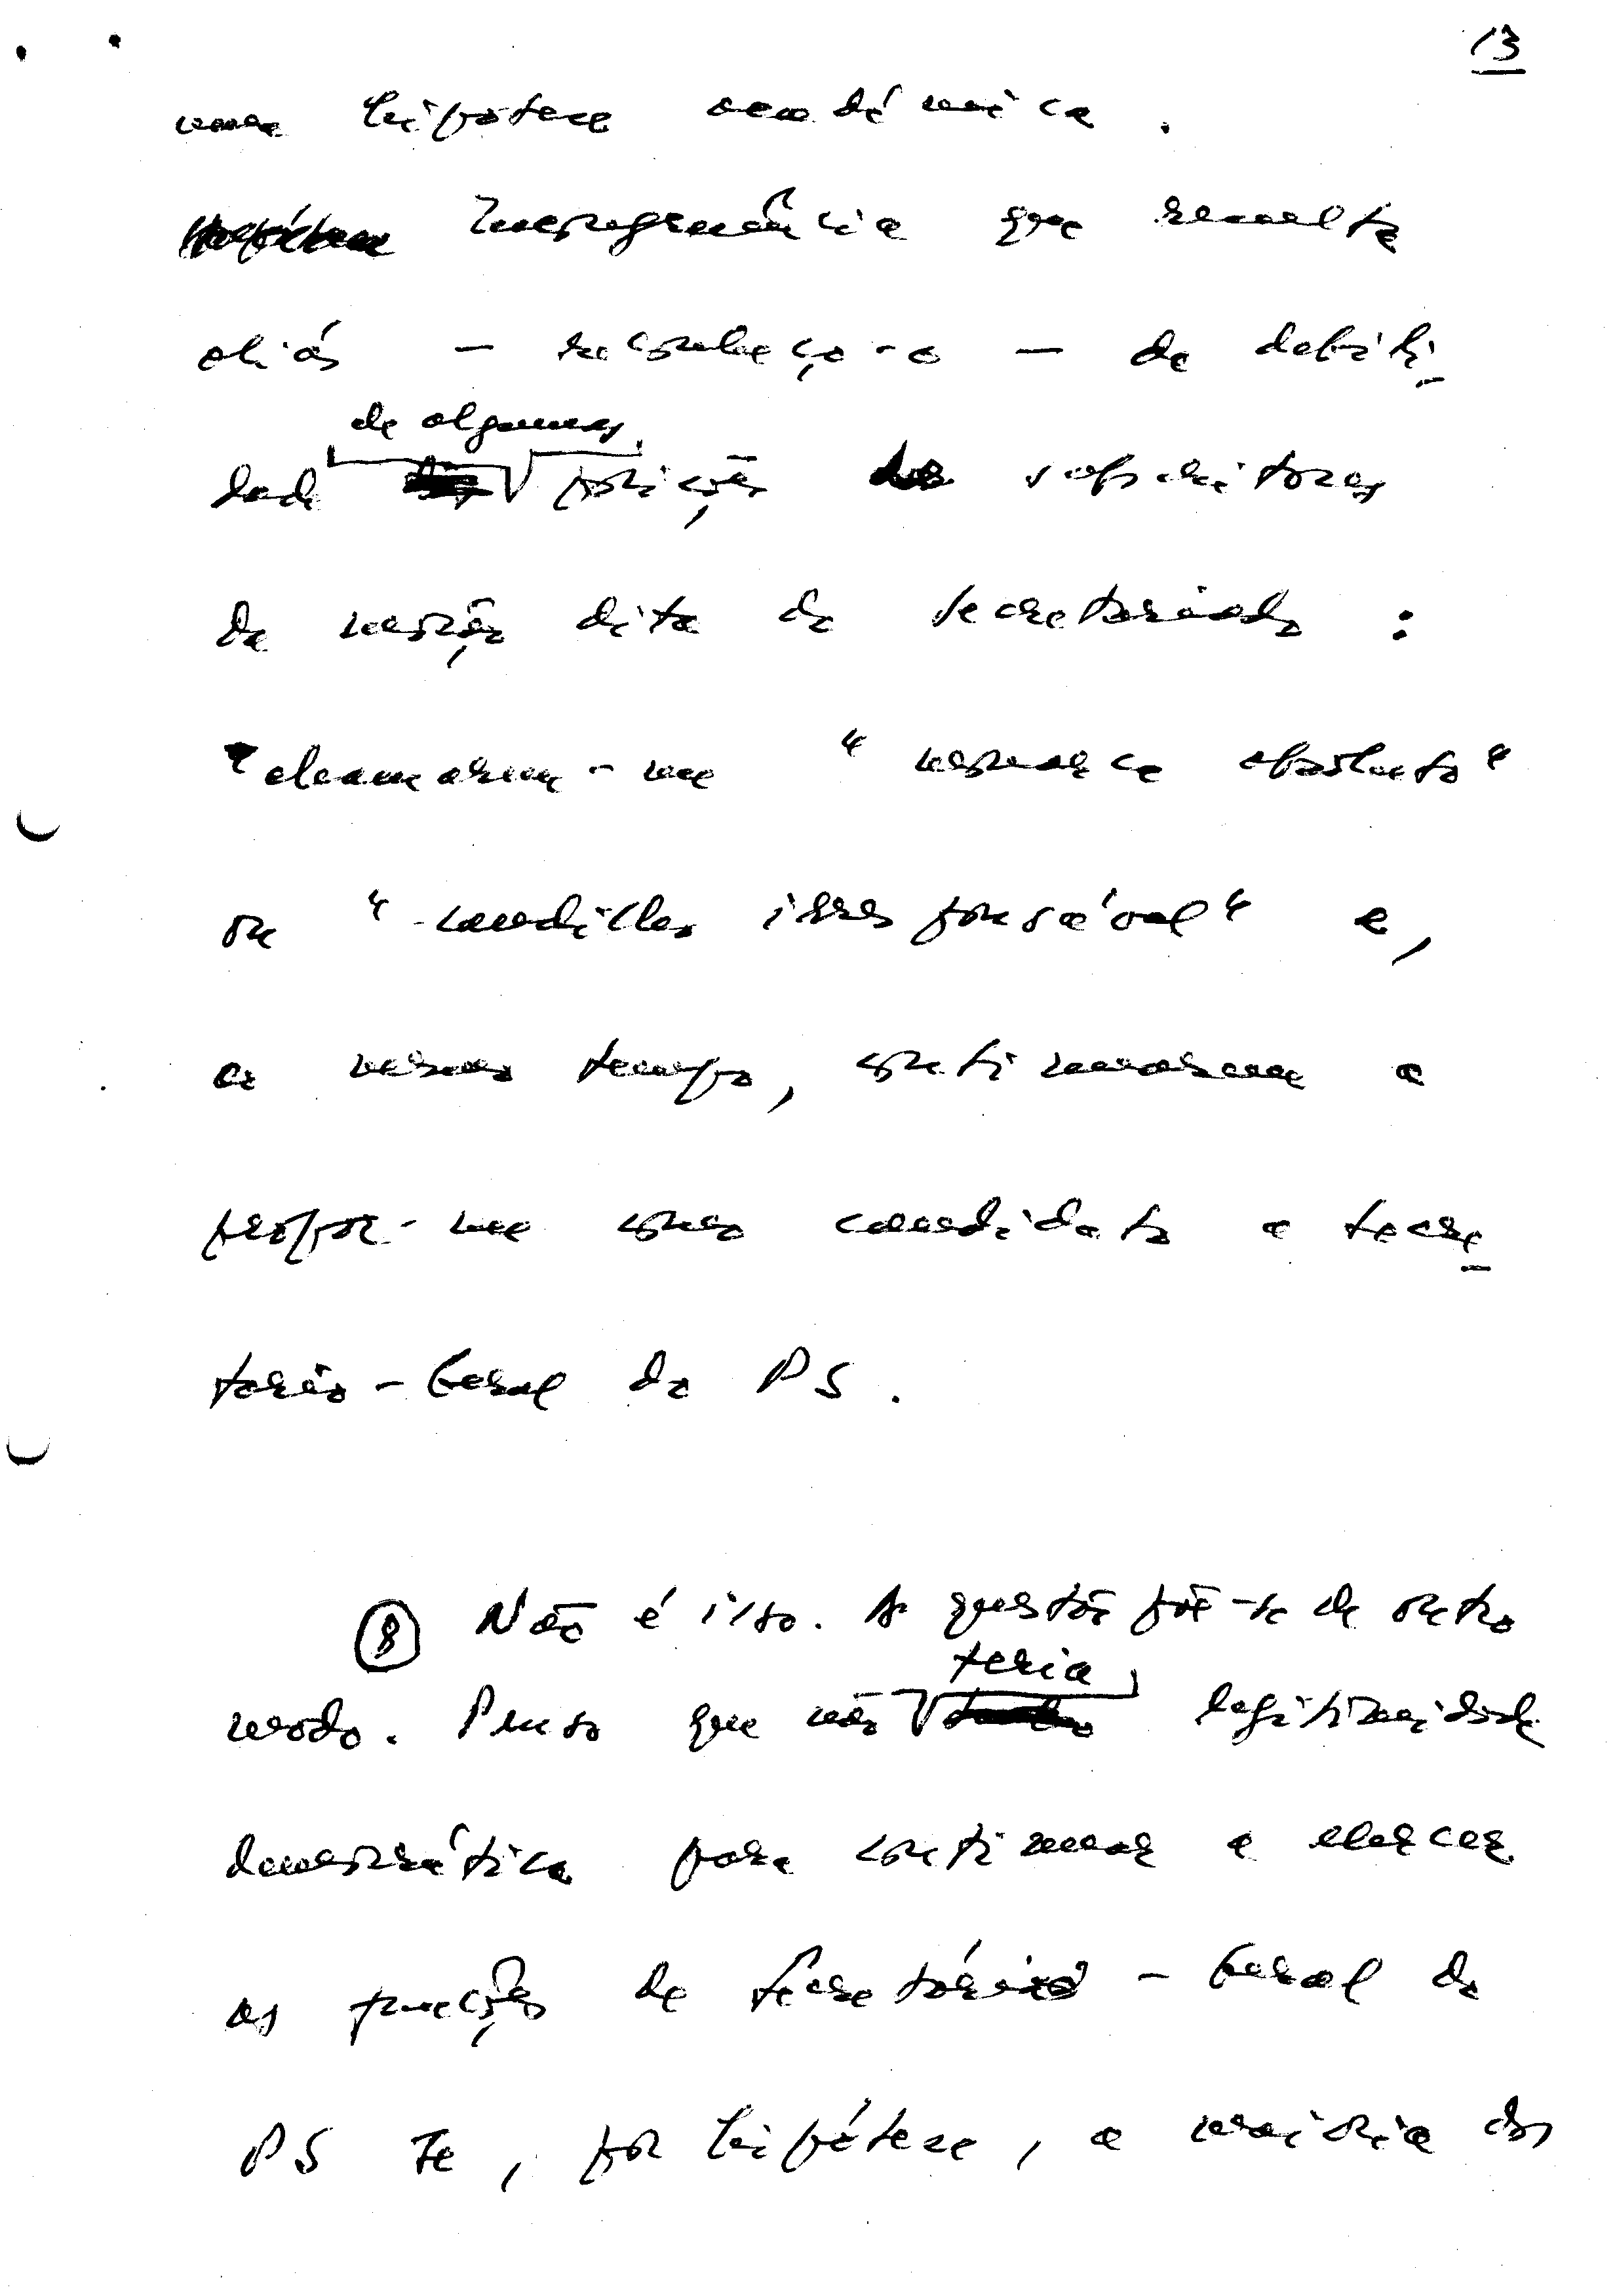 13
uma hipótese académica.
Incongruência que resulta
aliás — reconheço-o — da debili-
dade de algumas posições subscritores
da moção dita do secretariado:
chamaram-me "monarca absoluto"
ou "caudilho irresponsável" e,
ao mesmo tempo, continuaram a
propor-me como candidato a Secre-
tário-Geral do PS.
8 Não é isso. A questão põe-se de outro
teria
modo. Penso que não legitimidade
democrática para continuar a exercer
as funções de Secretário-Geral do
PS se, por hipótese, a maioria dos